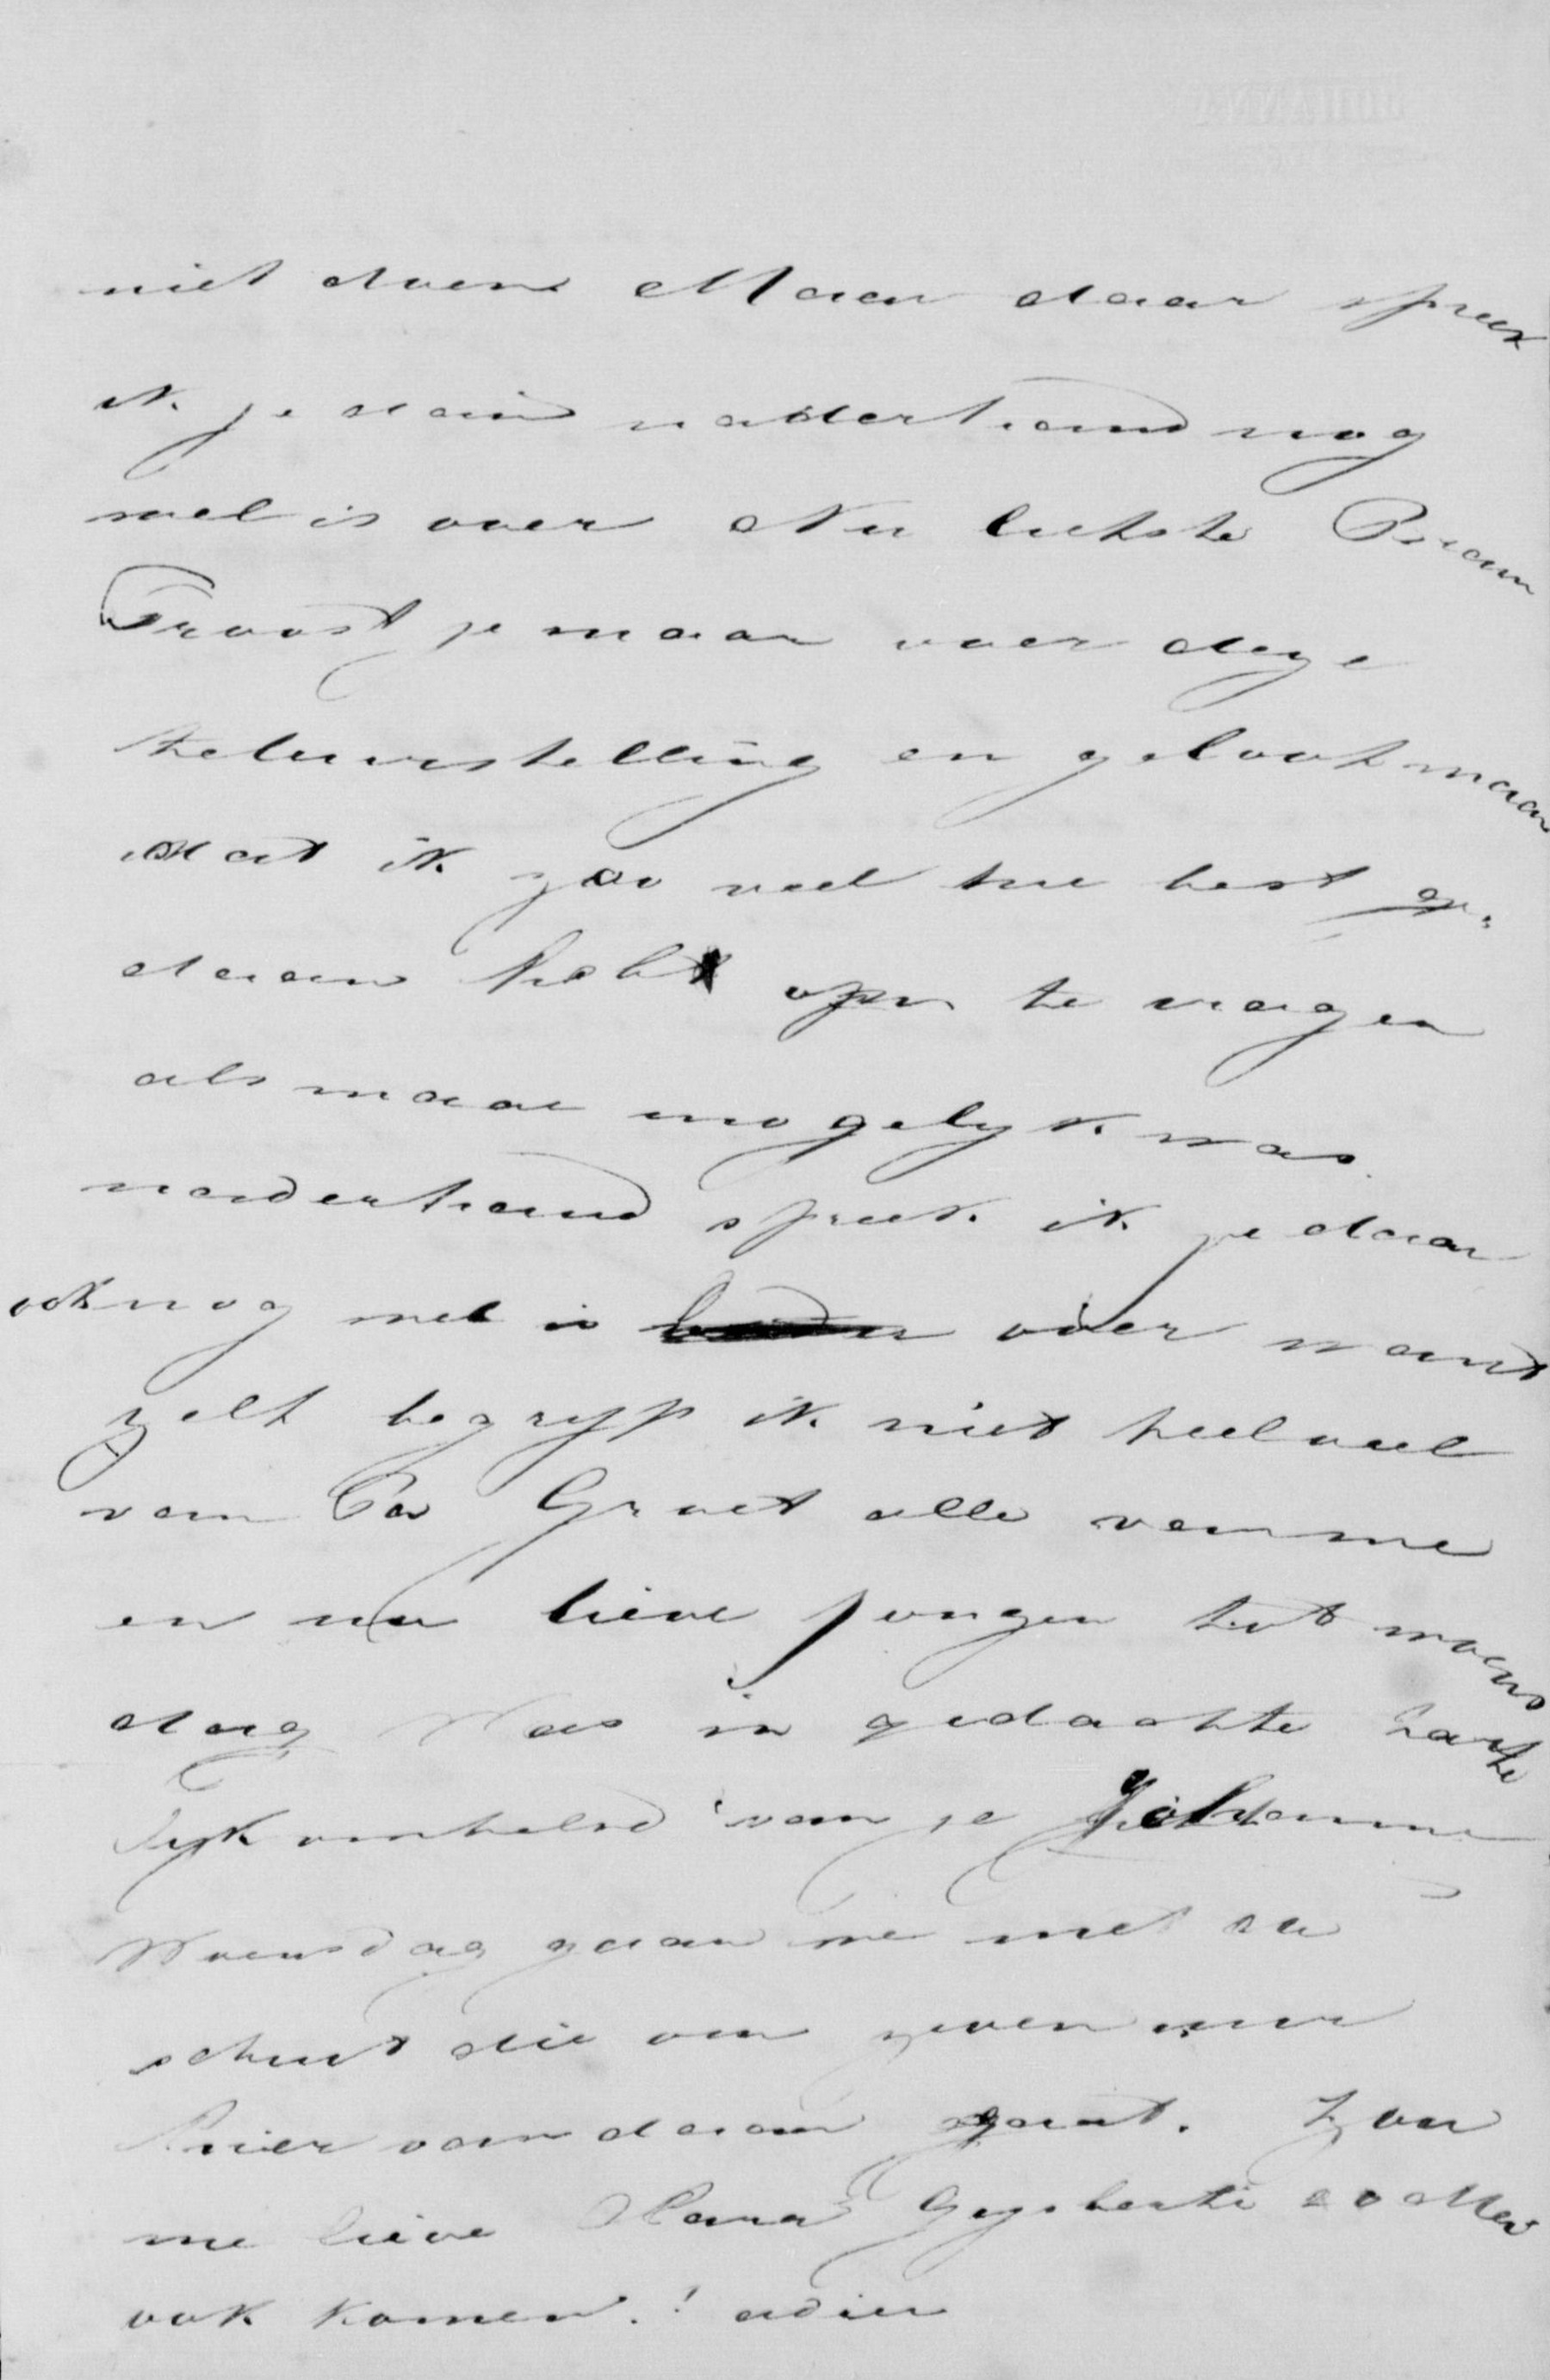 niet doen Maar daar spreek
ik je dan naderhand nog
wel is over Nu liefste Bram
Troost je maar over deze
teleurstelling en geloof maar
dat ik zoo veel me best ge,
daan heb open te vragen
als maar mogelyk was.
naderhand spreek ik je daar
ook nog wel is over want
zelf begryp ik niet heel veel
van Pa Groet alle van me
en nu lieve jongen tot woens
dag Was in gedachte harte
lyk omhelsd van je Johanna
Woensdag gaan we met de
schuit die om zeven uur
hier van daan gaat. Zou
me lieve Mama Gysbertie en
ook komen.! adieu